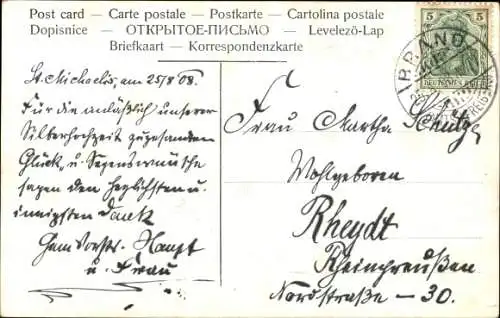 Post card — Carte postale — Postkarte — Cartolina postale
Dopisnice — ОТКРЫТОЕ-ПИСЬМО — Levelező-Lap
Briefkaart — Korrespondenzkarte
5 5
DEUTSCHES REICH
BRAND
St. Michaelis, am 25/8 08.
Für die anläßlich unserer
Silberhochzeit zugesandten
Glück- u. Segenswünsche
sagen den herzlichsten u.
innigsten Dank
Haupt
u. Frau
Frau Martha Schulze
Wohlgeboren
Rheydt
Rheinpreußen
Nordstraße — 30.